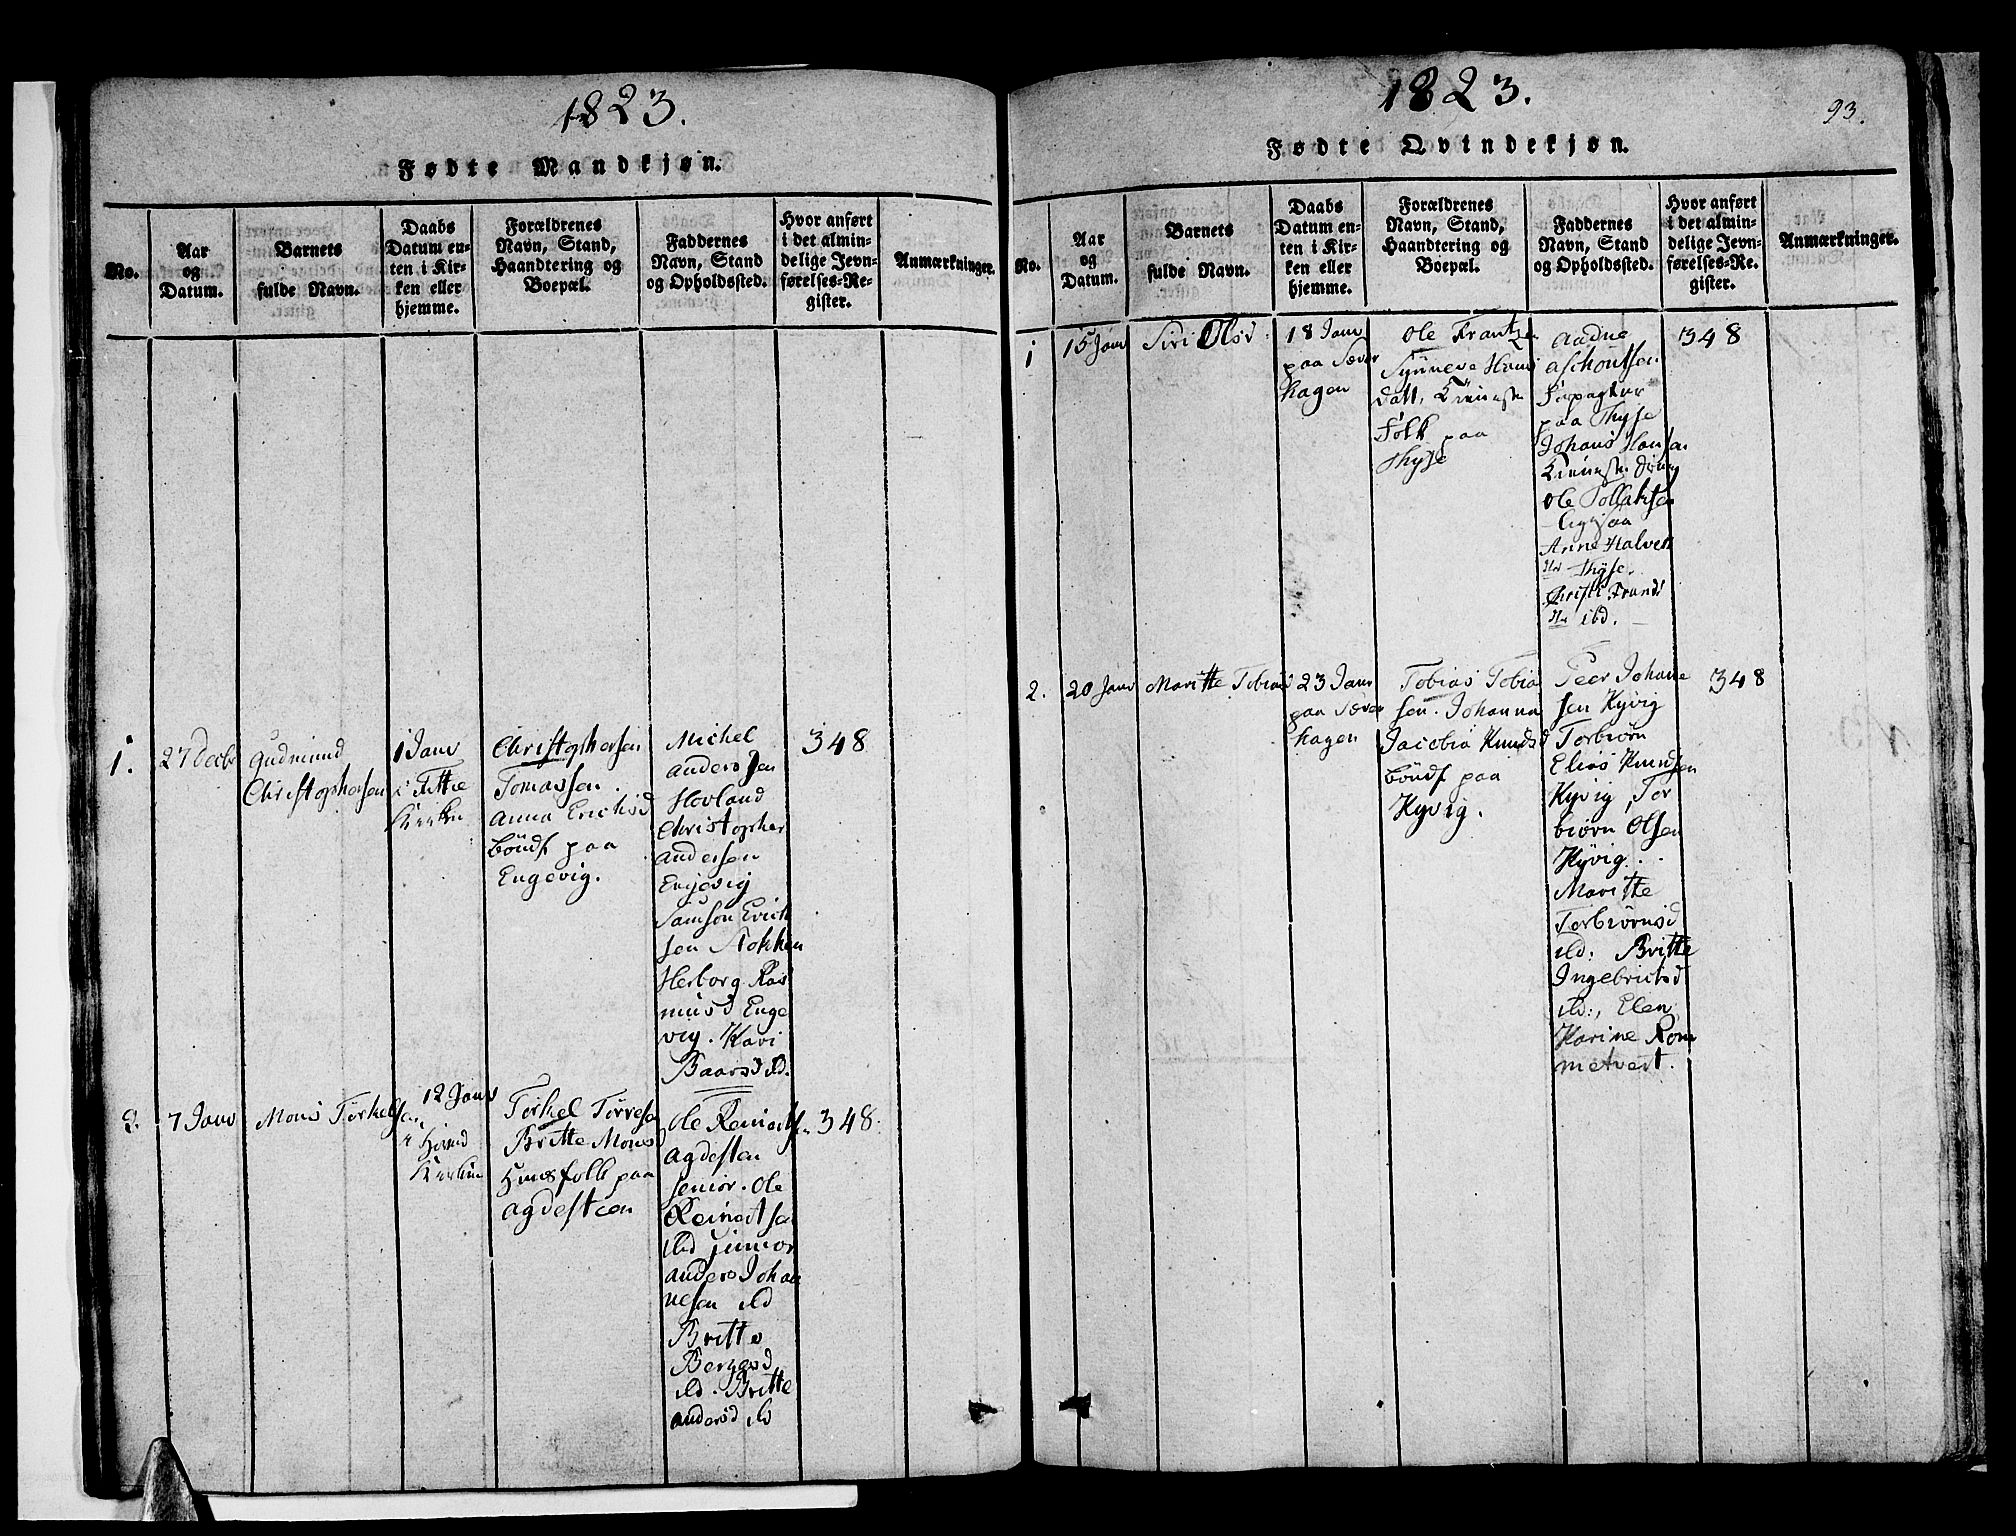 1823.
Fødte Mandkjøn.
No.
Aar
og
Datum.
Barnets
fulde Navn.
Daabs
Datum en-
ten i Kir-
ken eller
hjemme.
Forældrenes
Navn, Stand,
Haandtering og
Boepæl.
Faddernes
Navn, Stand
og Opholdssted.
Hvor anført
i det almin-
delige Jevn-
førelses-Re-
gister.
Anmærkninger.
1.
27 Decbr
Gudmund
Christophersen
1 Janv
i Fittie
Kirken
Christophersen
Tomassen.
Anna Erichsd
Bøndf paa
Engevig.
Michel
Anders sen
Hovland
Christopher
Andersen
Engevig
Samson Erich
sen Stokken
Herborg Ras
musd Enge
vig. Kari
Baarsd ibd.
348
2.
7 Janv
Mons Torkelsen
12 Janv
Kirken
Torkel Torresen
Britte Monsd
Huusfolk paa
Agdesteen
Ole Reinertsen
Agdesten
senior. Ole
Reinertsen
ibd junior
Anders Johan
nesen ibd
Britte
Bergesd
ibd. Britte
Andersd ibd
348.
1823.
93.
Fødte Qvindekjøn.
No.
Aar
og
Datum.
Barnets
fulde Navn.
Daabs
Datum en-
ten i Kir-
ken eller
hjemme.
Forældrenes
Navn, Stand,
Haandtering og
Boepæl.
Faddernes
Navn, Stand
og Opholdssted.
Hvor anført
i det almin-
delige Jevn-
førelses-Re-
gister.
Anmærkninger.
1
15 Janv
Siri Olsd.
18 Janv
paa Sæver
hagen
Ole Frantzen
Synneve Hans
datt,
Folk paa
Thyse
Aadne
paa Thyse
Johans Hansen
Ole Tollaksen
Anne Halvers
Thyse.
Christi Frands
ibd.
348
2.
20 Janv
Maritte Tobiasd
23 Janv
paa Sæver
hagen
Tobias Tobia
sen. Johanna
Jacobia Knudsd
Bøndf paa
Kyvig.
Peer Johane
sen Kyvig
Torbiørn
Elias Knudsen
Kyvig, Tor
biørn Olsen
Kyvig.
Maritte
Torbiørnsd
ibd: Britte
Ingebrictsd
ibd:, Elen
Karine Rom
metvedt.
348